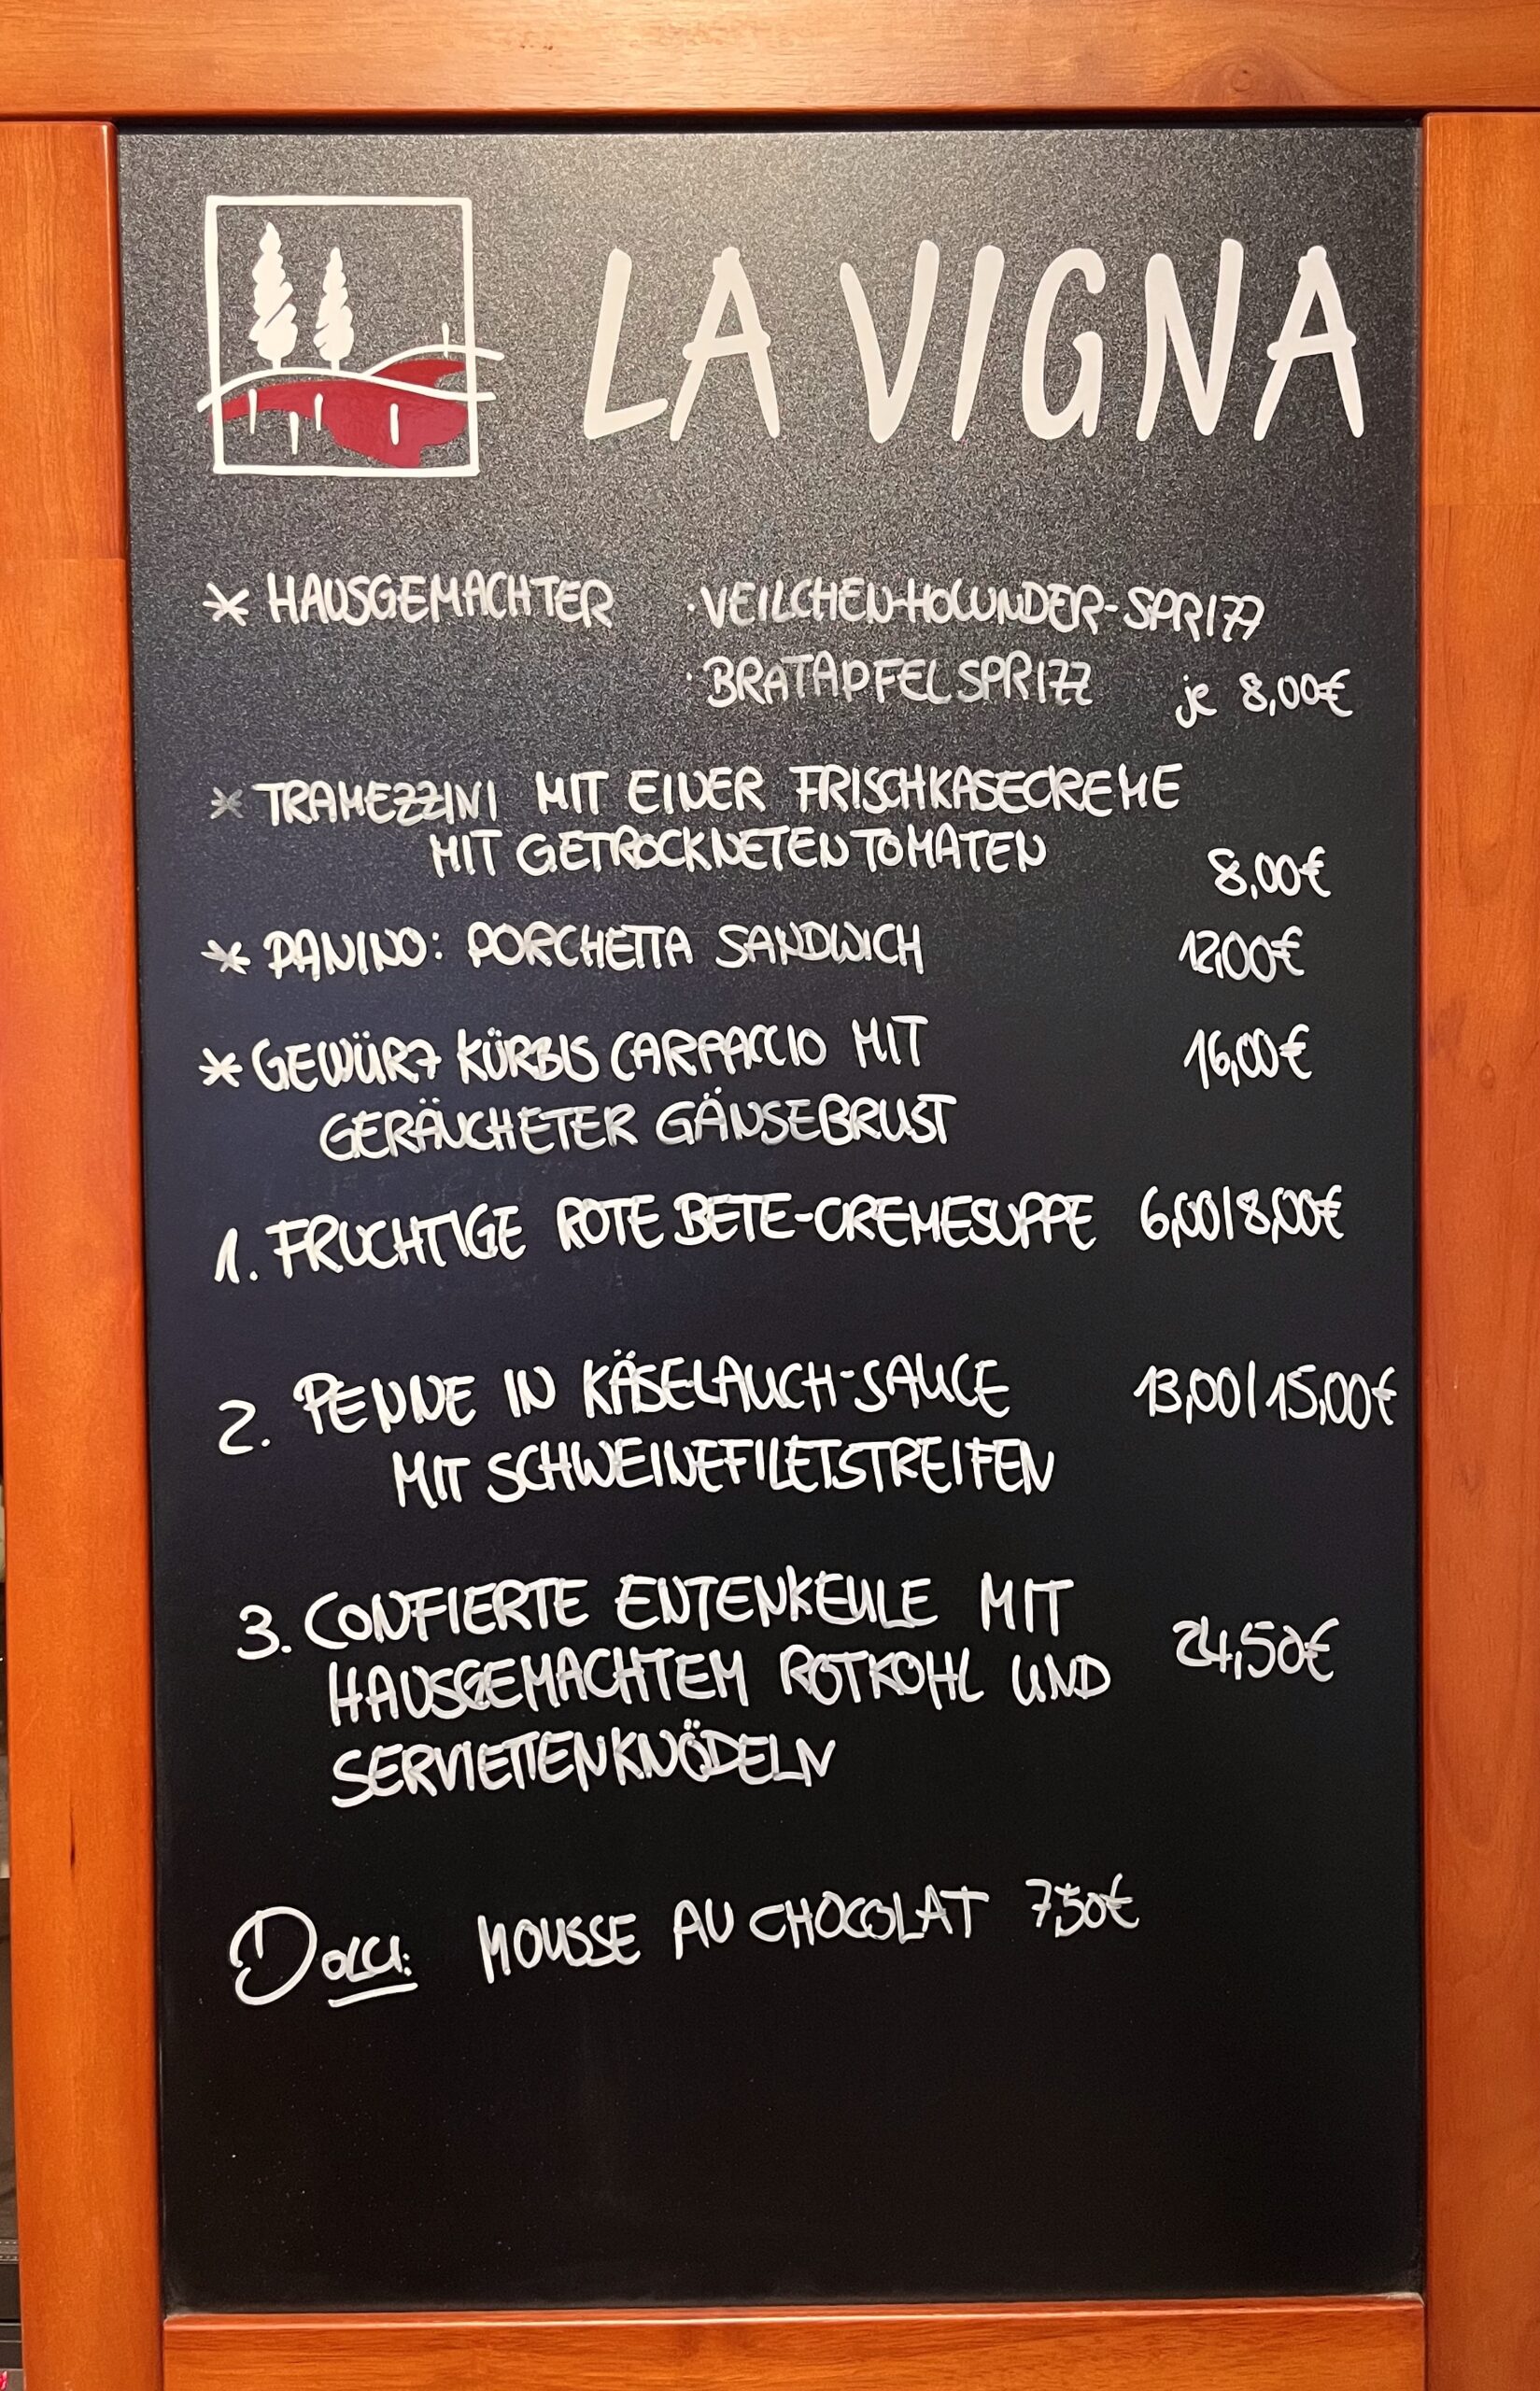 LA VIGNA
* HAUSGEMACHTER · VEILCHEN-HOLUNDER-SPRIZZ
· BRATAPFEL SPRIZZ je 8,00€
* TRAMEZZINI MIT EINER FRISCHKASECREME
MIT GETROCKNETEN TOMATEN 8,00€
* PANINO: PORCHETTA SANDWICH 12,00€
* GEWÜRZ KÜRBIS CARPACCIO MIT 16,00€
GERÄUCHETER GÄNSEBRUST
1. FRUCHTIGE ROTE BETE-CREMESUPPE 6,00/8,00€
2. PENNE IN KÄSELAUCH-SAUCE 13,00/15,00€
MIT SCHWEINEFILETSTREIFEN
3. CONFIERTE ENTENKEULE MIT
HAUSGEMACHTEM ROTKOHL UND 24,50€
SERVIETTENKNÖDELN
Dolci: MOUSSE AU CHOCOLAT 7,50€